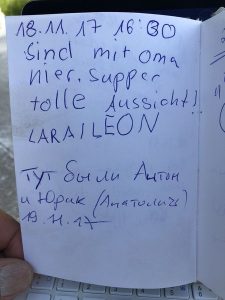 18.11.17 16:30
Sind mit oma
hier. Supper
tolle Aussicht!
LARA LEON
Тут были Антон
и Юрик (Анатолич)
19.11.17